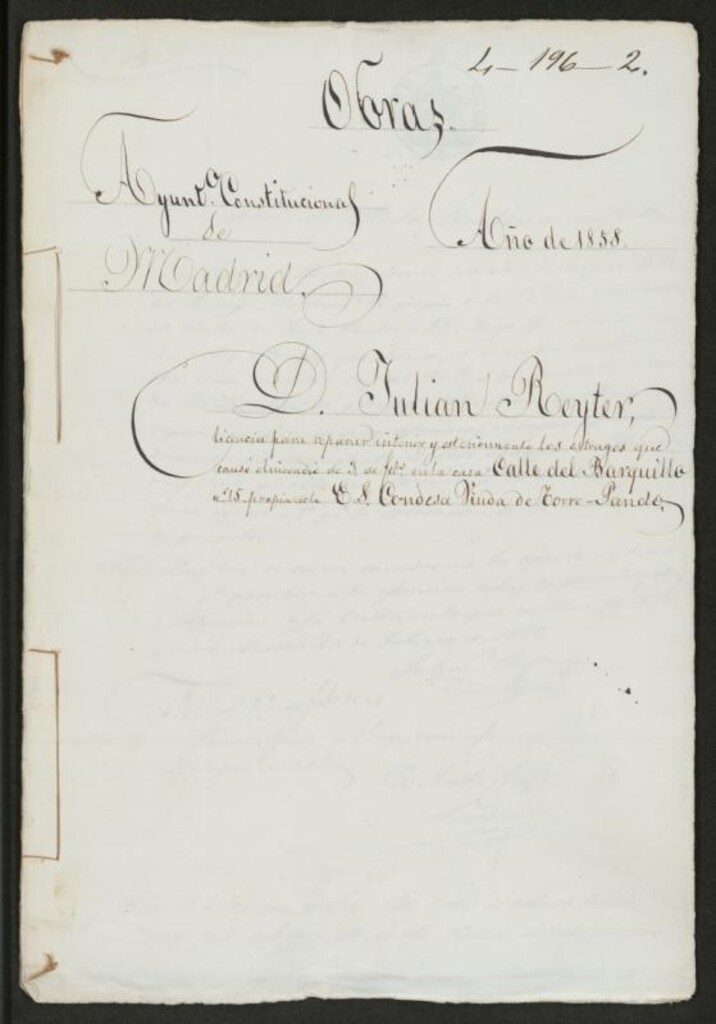 4-196-2.
Obras.
Ayunt.º Constitucional
de
Madrid.
Año de 1858.
D. Julian Reyter,
licencia para reparar interior y esteriormente los estragos que
causó el incendio de 3 de feb.º en la casa Calle del Barquillo
nº 15. propia de la E. S. Condesa Viuda de Torre-Pando.